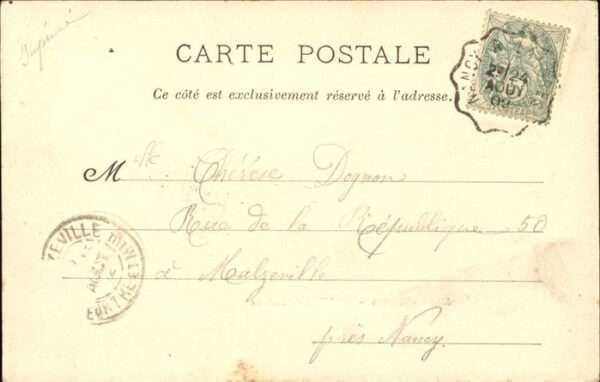 Imprimé
CARTE POSTALE
Ce côté est exclusivement réservé à l'adresse.
NANCY
23/24
AOUT
02
Mlle Thérèse Dognon
Rue de la République 50
à Malzeville
près Nancy